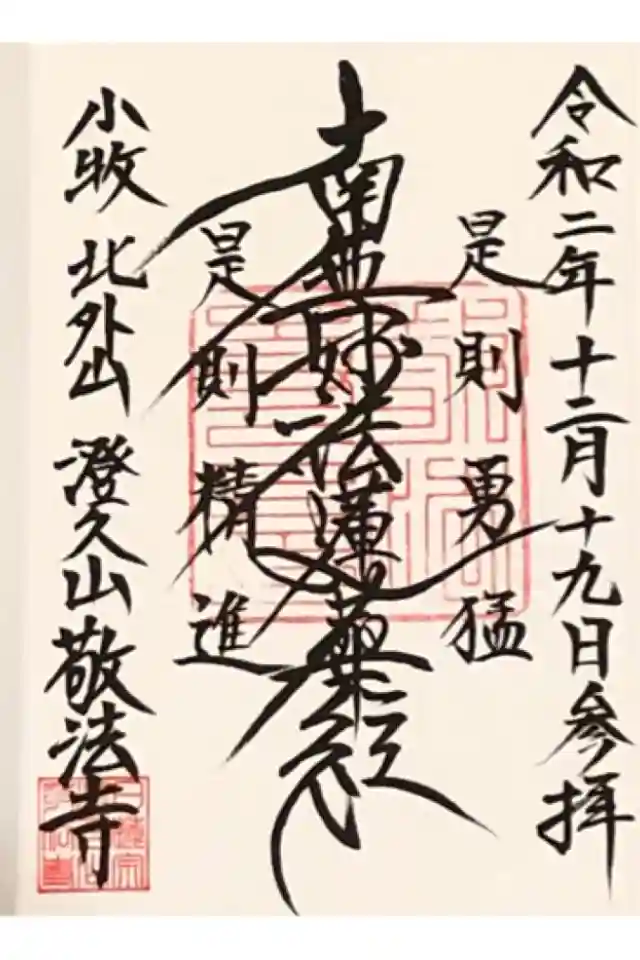 令和二年十二月十九日参拝
是則勇猛
南無妙法蓮華経
是則精進
小牧 北外山 澄久山 敬法寺